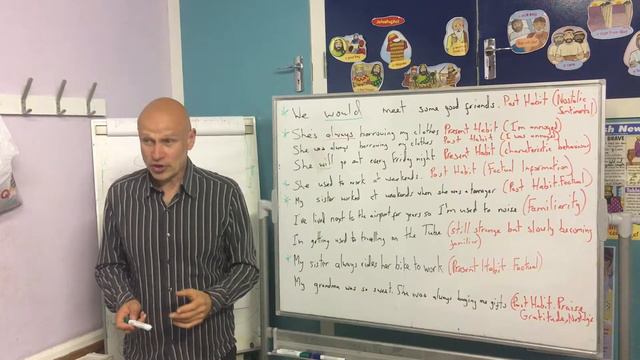 We would meet some good friends. Past Habit (Nostalic
Sentimental)
She's always borrowing my clothes Present Habit (I'm annoyed)
She was always borrowing my clothes Past Habit (I was annoyed)
She will go out every Friday night Present Habit (charateristic behaviour)
She used to work at weekends. Past Habit (Factual Information)
My sister worked at weekends when she was a teenager (Past Habit Factual)
I've lived next to the airport for years so I'm used to noise (Familiarity)
I'm getting used to travelling on the Tube (still strange but slowly becoming
familiar)
My sister always rides her bike to work (Present Habit Factual)
My grandma was so sweet. She was always buying me gifts (Past Habit. Praise,
Gratitude, Nostalgia